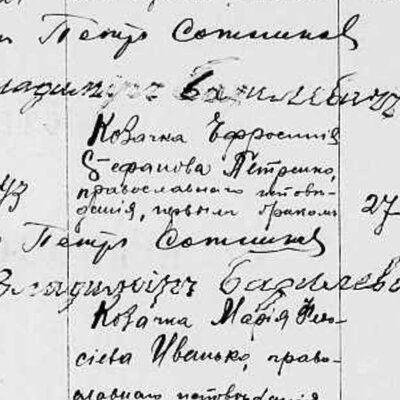 Петръ Сотников
Владимиръ Базилевичъ
Козачка Ефросинія
Стефанова Петренко,
православнаго исповѣ-
данія, первымъ бракомъ
27
Петръ Сотников
Владиміръ Базилев
Козачка Марія
сіева Иванько, право-
славнаго исповѣданія